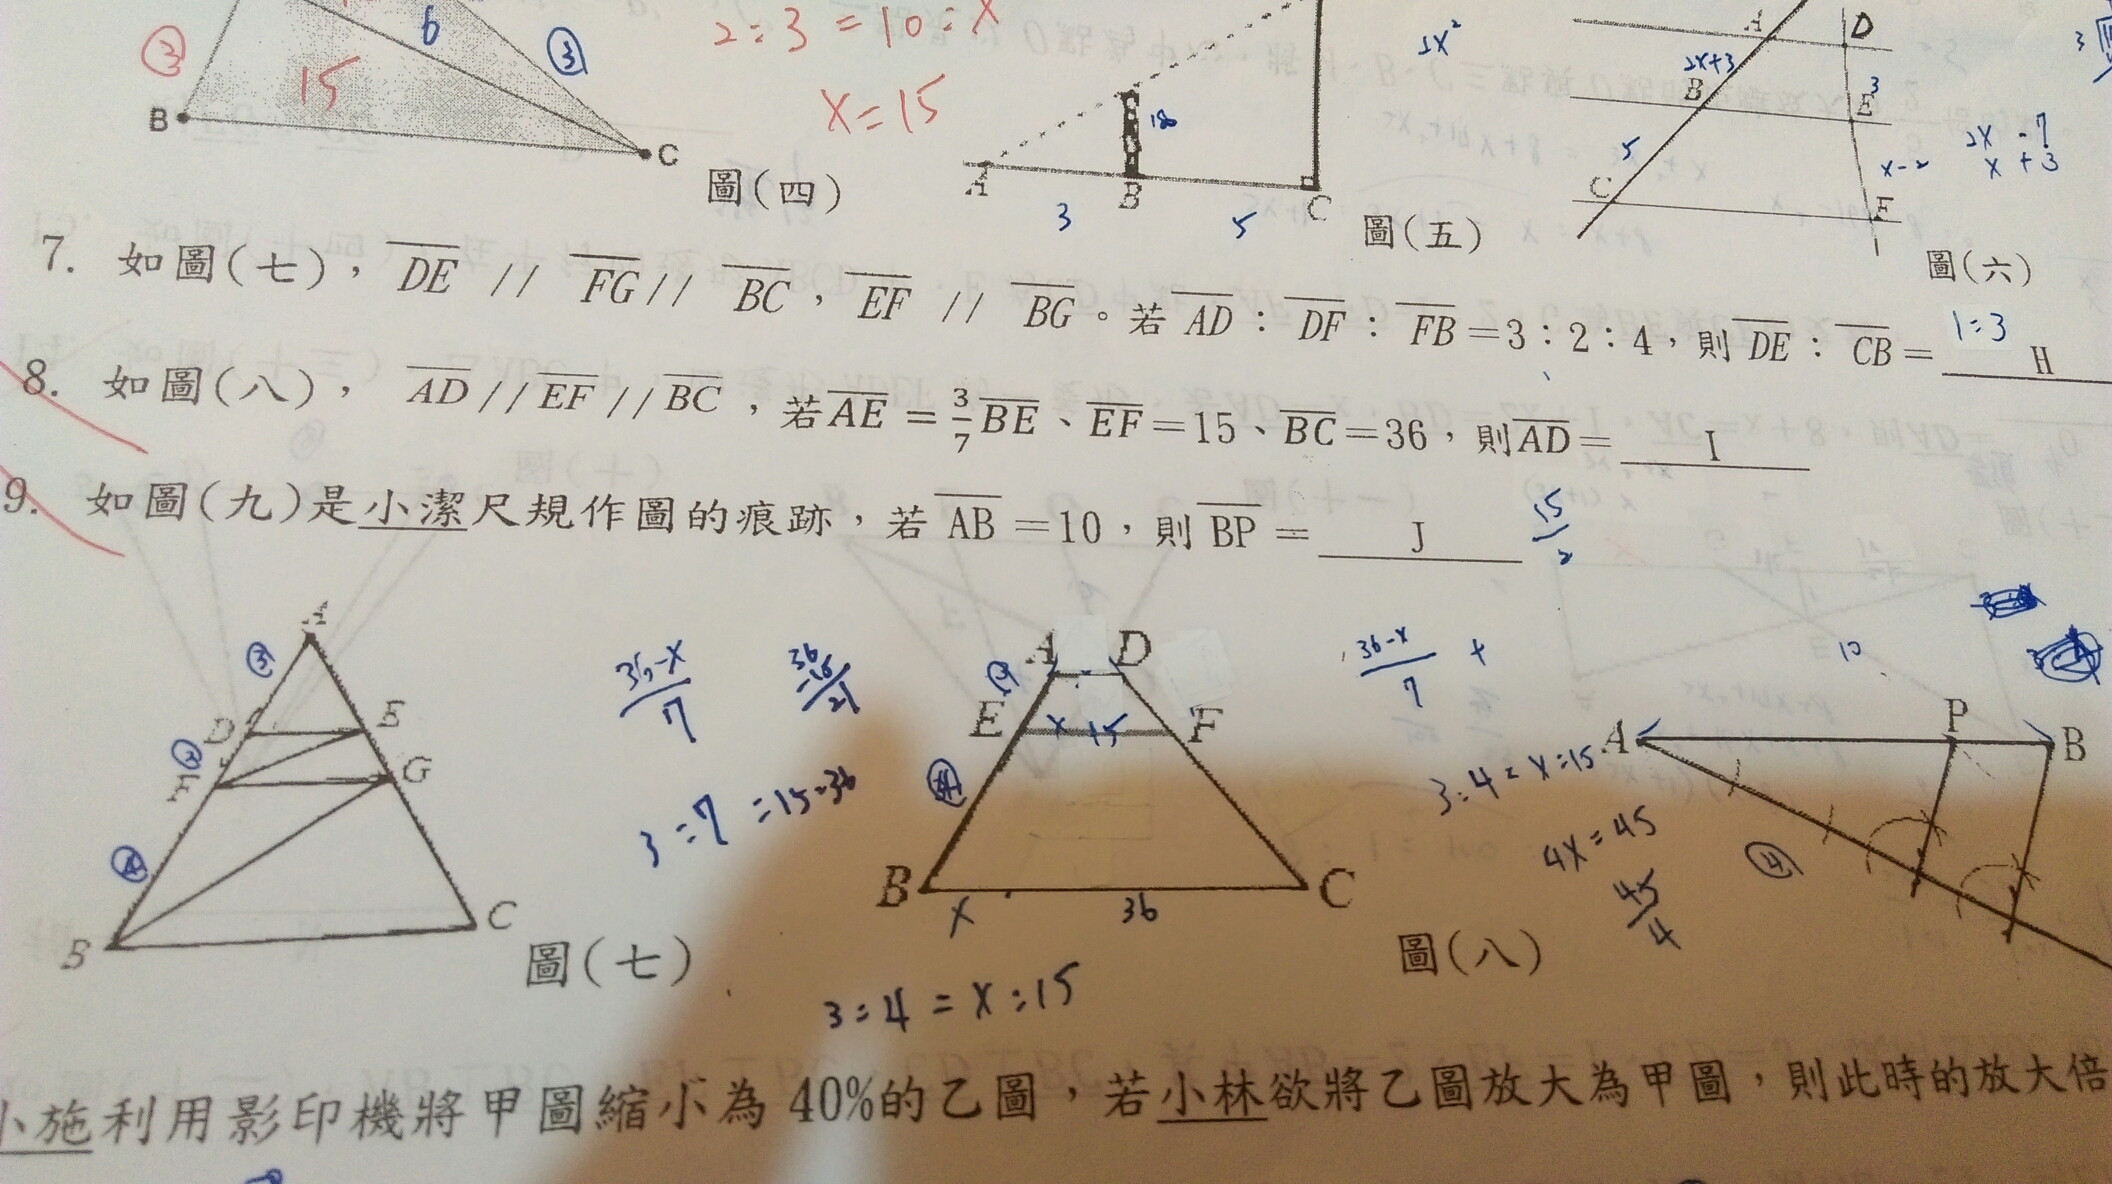 2:3=10:x
x=15
③
6
③
15
B
C
圖(四)
18
A
B
C
3
5
圖(五)
2x²
A
D
2x+3
3
B
E
5
x-2
C
F
2x -7
x +3
3
圖(六)
7. 如圖(七), DE // FG // BC, EF // BG。若 AD:DF:FB=3:2:4, 則 DE:CB= 1:3 H
8. 如圖(八), AD//EF//BC, 若AE=3/7BE、EF=15、BC=36, 則AD= I
9. 如圖(九)是小潔尺規作圖的痕跡, 若 AB=10, 則 BP= J 15/2
A
③
D
E
②
F
G
④
B
C
圖(七)
36-x/7
36-15/21
3:7=15:36
A
D
E
x
15
F
B
C
x
36
圖(八)
3:4=x:15
36-x/7 +
3:4=x:15
4x=45
45/4
10
A
P
B
④
小施利用影印機將甲圖縮小為 40%的乙圖, 若小林欲將乙圖放大為甲圖, 則此時的放大倍